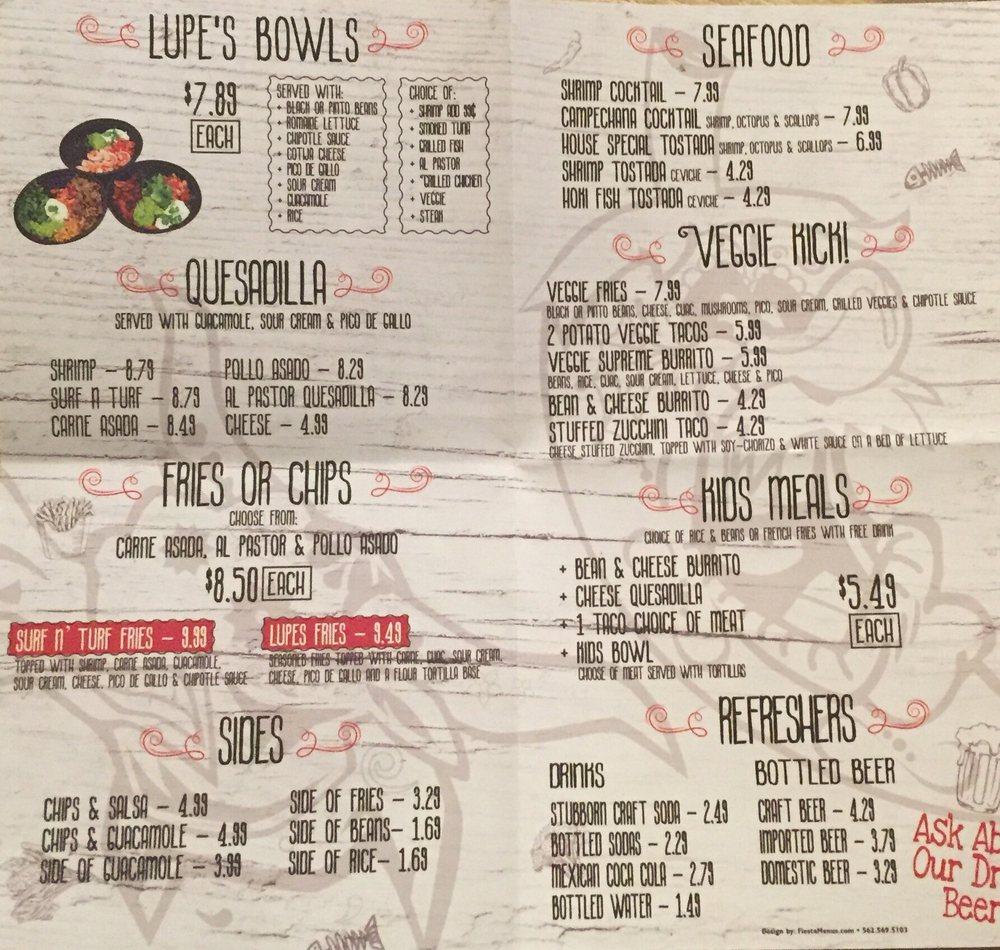 LUPE'S BOWLS
$7.89
EACH
SERVED WITH:
+ BLACK OR PINTO BEANS
+ ROMAINE LETTUCE
+ CHIPOTLE SAUCE
+ COTIJA CHEESE
+ PICO DE GALLO
+ SOUR CREAM
+ GUACAMOLE
+ RICE
CHOICE OF:
+ SHRIMP ADD 99¢
+ SMOKED TUNA
+ GRILLED FISH
+ AL PASTOR
+ *GRILLED CHICKEN
+ VEGGIE
+ STEAK
QUESADILLA
SERVED WITH GUACAMOLE, SOUR CREAM & PICO DE GALLO
SHRIMP – 8.79
SURF N TURF – 8.79
CARNE ASADA – 8.49
POLLO ASADO – 8.29
AL PASTOR QUESADILLA – 8.29
CHEESE – 4.99
FRIES OR CHIPS
CHOOSE FROM:
CARNE ASADA, AL PASTOR & POLLO ASADO
$8.50 EACH
SURF N' TURF FRIES – 9.99
TOPPED WITH SHRIMP, CARNE ASADA, GUACAMOLE,
SOUR CREAM, CHEESE, PICO DE GALLO & CHIPOTLE SAUCE
LUPES FRIES – 9.49
SEASONED FRIES TOPPED WITH CARNE, GUAC, SOUR CREAM,
CHEESE, PICO DE GALLO AND A FLOUR TORTILLA BASE
SIDES
CHIPS & SALSA – 4.99
CHIPS & GUACAMOLE – 4.99
SIDE OF GUACAMOLE – 3.99
SIDE OF FRIES – 3.29
SIDE OF BEANS– 1.69
SIDE OF RICE– 1.69
SEAFOOD
SHRIMP COCKTAIL – 7.99
CAMPECHANA COCKTAIL SHRIMP, OCTOPUS & SCALLOPS – 7.99
HOUSE SPECIAL TOSTADA SHRIMP, OCTOPUS & SCALLOPS – 6.99
SHRIMP TOSTADA CEVICHE – 4.29
HOKI FISH TOSTADA CEVICHE – 4.29
VEGGIE KICK!
VEGGIE FRIES – 7.99
BLACK OR PINTO BEANS, CHEESE, GUAC, MUSHROOMS, PICO, SOUR CREAM, GRILLED VEGGIES & CHIPOTLE SAUCE
2 POTATO VEGGIE TACOS – 5.99
VEGGIE SUPREME BURRITO – 5.99
BEANS, RICE, GUAC, SOUR CREAM, LETTUCE, CHEESE & PICO
BEAN & CHEESE BURRITO – 4.29
STUFFED ZUCCHINI TACO – 4.29
CHEESE STUFFED ZUCCHINI, TOPPED WITH SOY-CHORIZO & WHITE SAUCE ON A BED OF LETTUCE
KIDS MEALS
CHOICE OF RICE & BEANS OR FRENCH FRIES WITH FREE DRINK
+ BEAN & CHEESE BURRITO
+ CHEESE QUESADILLA
+ 1 TACO CHOICE OF MEAT
+ KIDS BOWL
CHOOSE OF MEAT SERVED WITH TORTILLAS
$5.49
EACH
REFRESHERS
DRINKS
STUBBORN CRAFT SODA – 2.49
BOTTLED SODAS – 2.29
MEXICAN COCA COLA – 2.79
BOTTLED WATER – 1.49
BOTTLED BEER
CRAFT BEER – 4.29
IMPORTED BEER – 3.79
DOMESTIC BEER – 3.29
Ask Ab
Our Dr
Beer
Design by: FiestaMenus.com • 562.569.5103